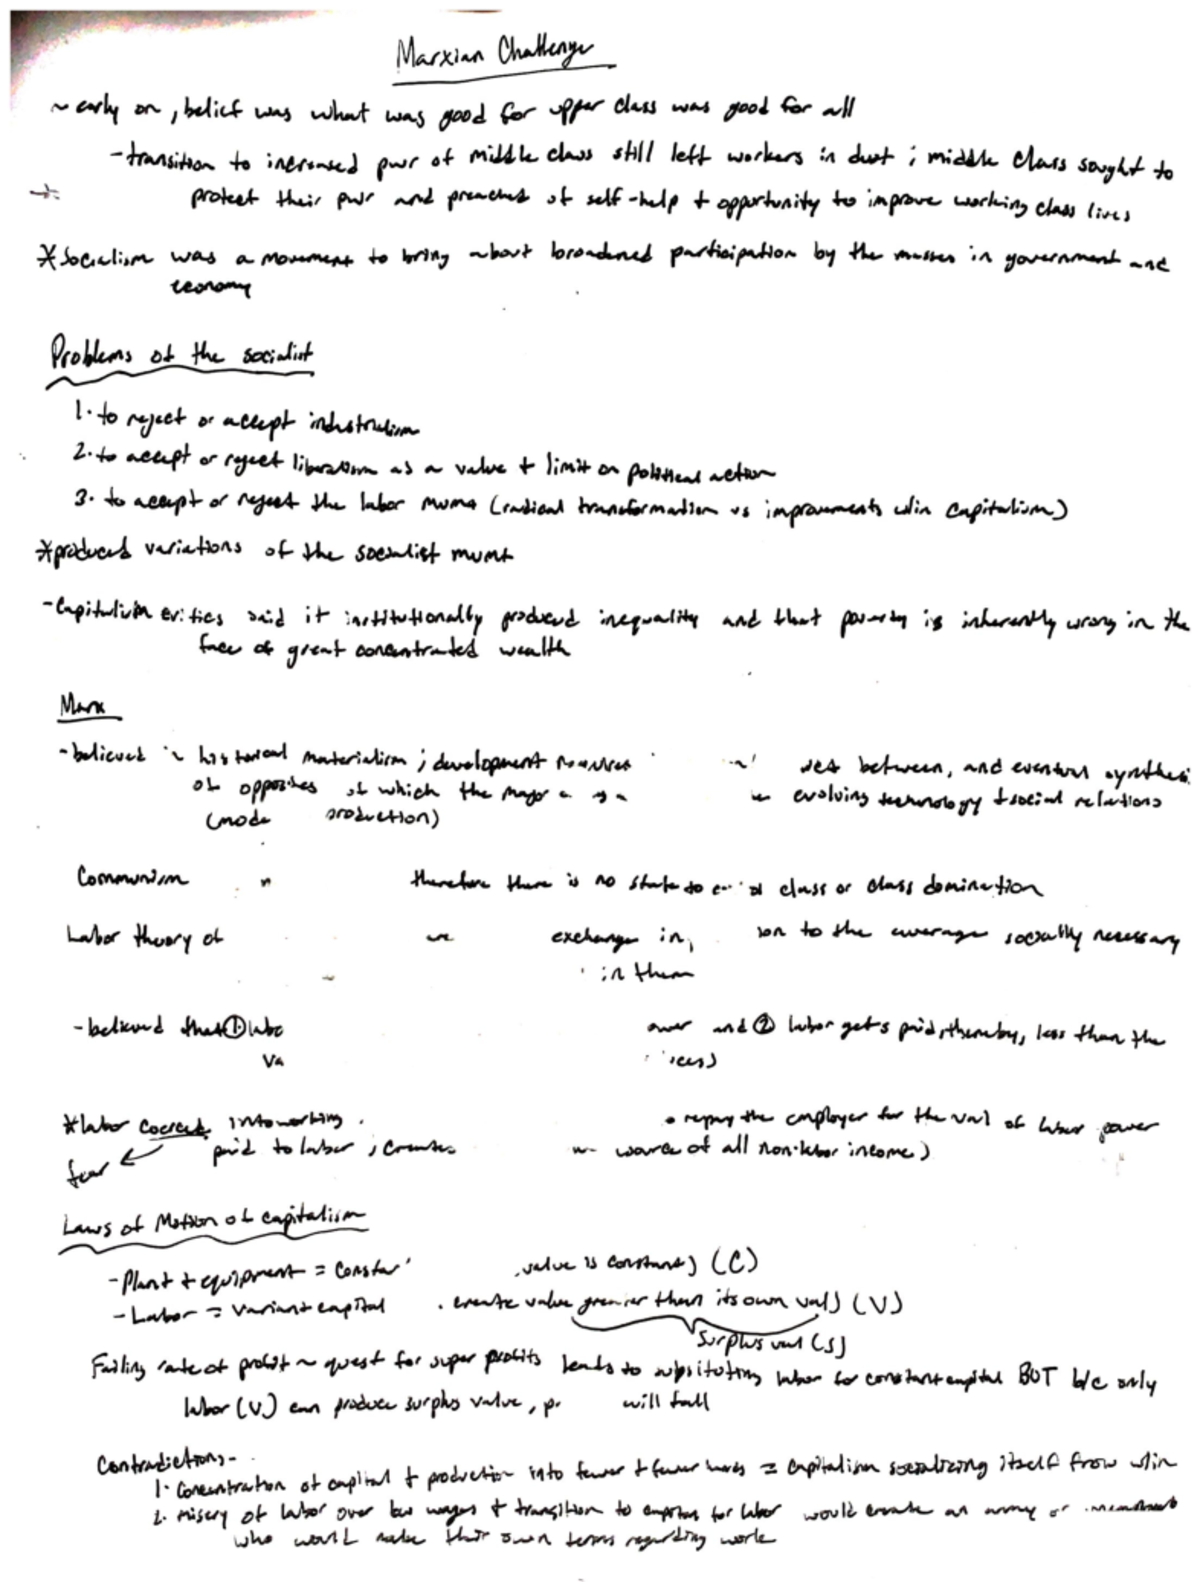 Marxian Challenge
~ early on, belief was what was good for upper class was good for all
- transition to increased pwr of middle class still left workers in dust ; middle class sought to
protect their pwr and preached of self-help + opportunity to improve working class lives
* Socialism was a movement to bring about broadened participation by the masses in government and
economy
Problems of the socialist
1. to reject or accept industrialism
2. to accept or reject liberalism as a value + limit on political action
3. to accept or reject the labor mvmt (radical transformation vs improvements w/in capitalism)
* produced variations of the socialist mvmt
- Capitalism critics said it institutionally produced inequality and that poverty is inherently wrong in the
face of great concentrated wealth
Marx
- believed historical materialism ; development requires between, and eventual
of opposites of which the major evolving technology + social relations
(mode production)
Communism therefore there is no state to class or class domination
Labor theory of exchange in to the average socially necessary
in them
- believed that ① and ② labor gets paid, thereby, less than the
* labor coerced into working repay the employer for the val of labor power
fear paid to labor ; creates source of all non-labor income)
Laws of Motion of capitalism
- Plant + equipment = value is constant) (C)
- Labor = variant capital create value greater than its own val) (V)
Surplus val (S)
Falling rate of profit ~ quest for super profits leads to subsituting labor for constant capital BUT b/c only
labor (V) can produce surplus value, will fall
Contradictions -
1. Concentration of capital + production into fewer + fewer hands = capitalism socializing itself from w/in
2. misery of labor over low wages + transition to capital for labor would create an army of
who would make their own terms regarding work